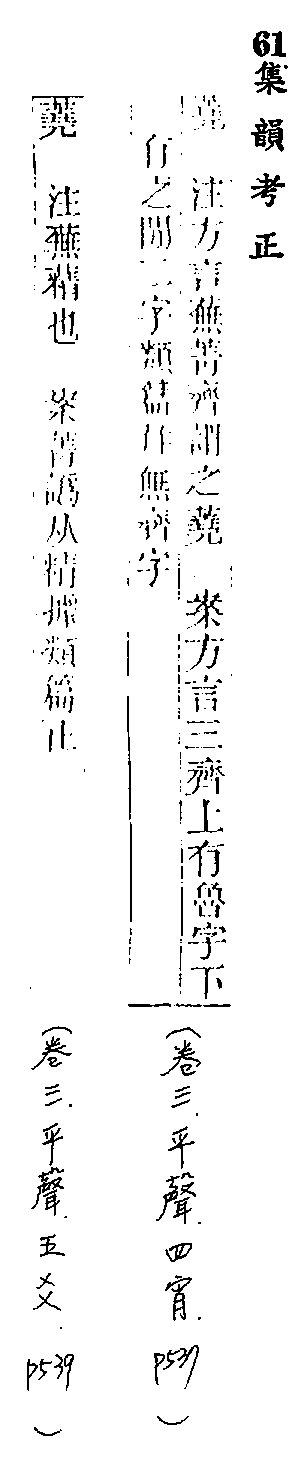 61集韻考正
蕘　注方言蕪菁齊謂之蕘　案方言三齊上有魯字下
有之閒二字類篇作無齊字
蕘　注蕪精也　案菁譌从精據類篇正
(卷三.平聲.四宵.P537)
(卷三.平聲.五爻.P539)